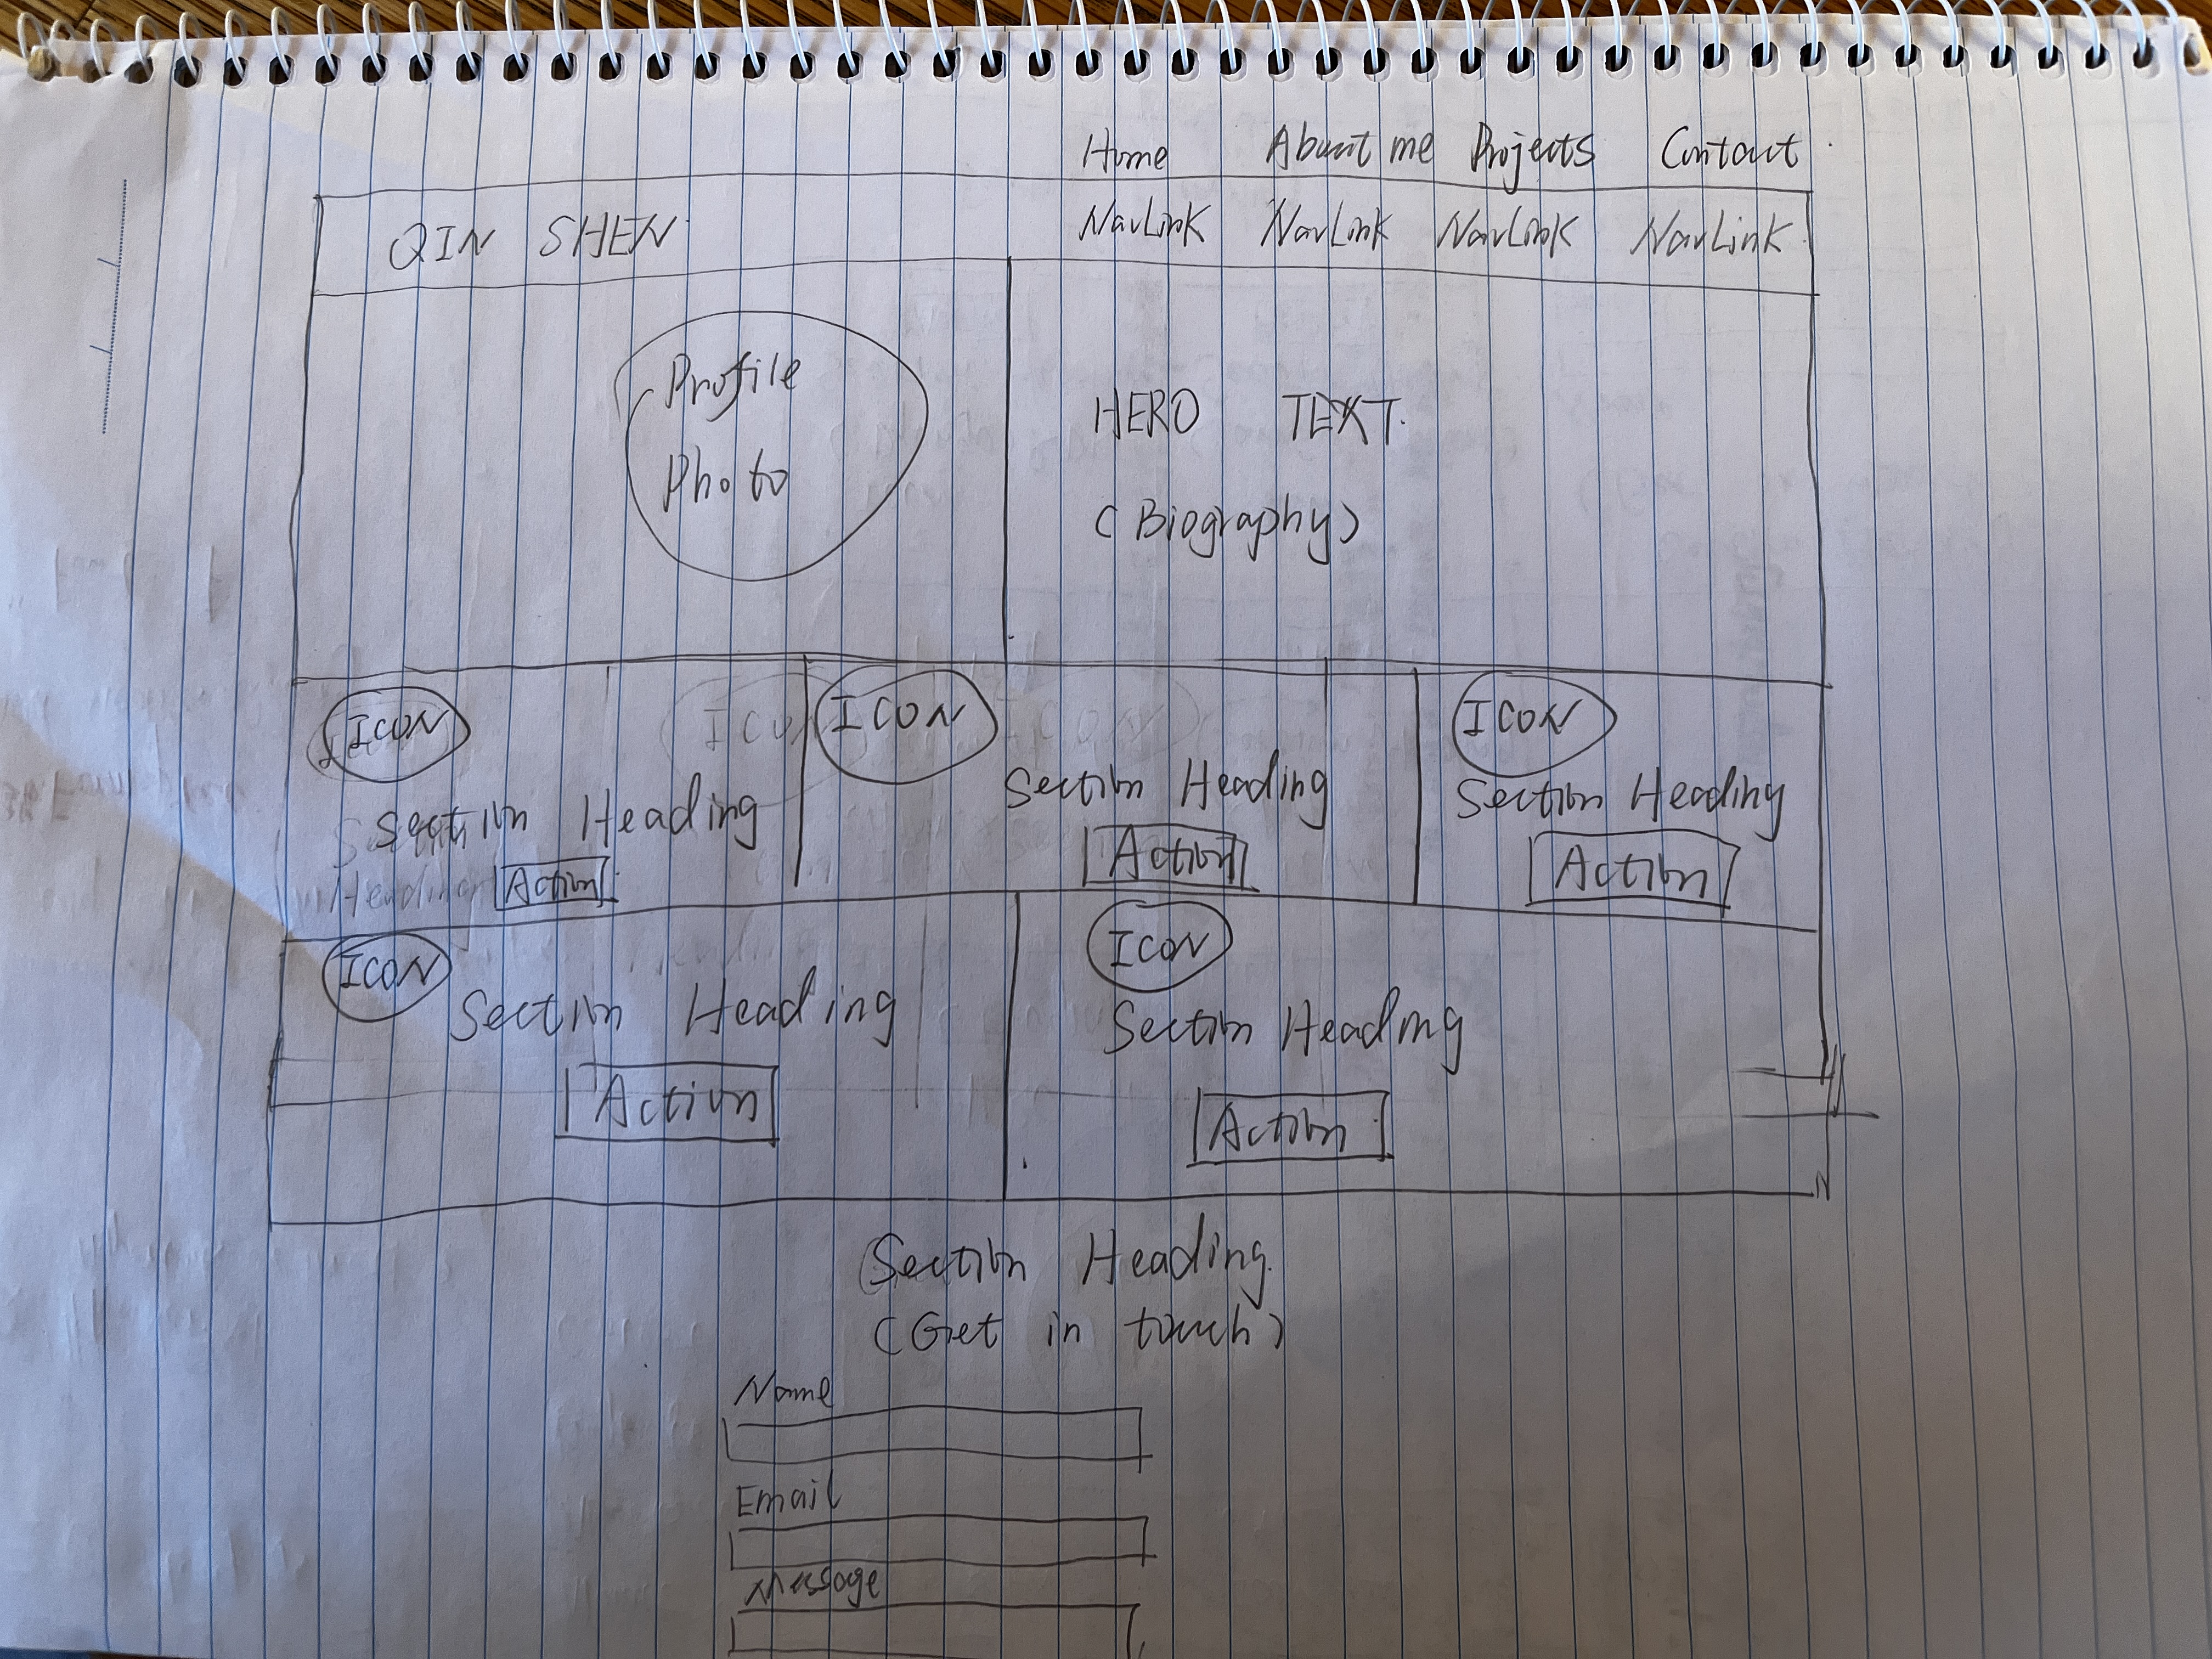 Home About me Projects Contact
QIN SHEN NavLink NavLink NavLink NavLink
Profile
Photo
HERO TEXT.
(Biography)
ICON
Section Heading
Action
ICON
Section Heading
Action
ICON
Section Heading
Action
ICON
Section Heading
Action
ICON
Section Heading
Action
Section Heading
(Get in touch)
Name
Email
Message